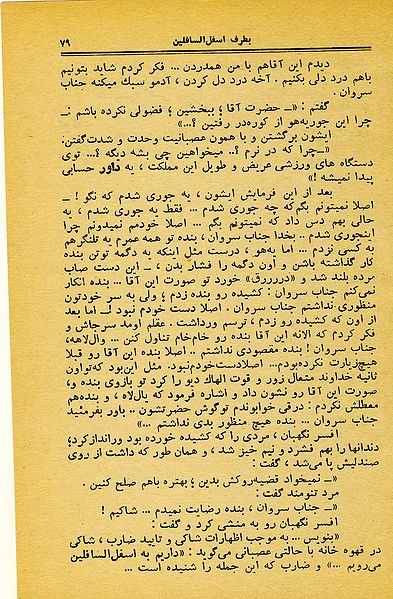 بطرف اسفل‌السافلین
۷۹
دیدم این آقاهم با من همدردن ... فکر کردم شاید بتونیم
باهم درد دلی بکنیم . آخه درد دل کردن ، آدمو سبك میکنه جناب
سروان .
گفتم : «ــ حضرت آقا ؛ ببخشین ؛ فضولی نکرده باشم :ــ
چرا این جوریه‌هو از کوره‌در رفتین ؟...»
ایشون برگشتن و با همون عصبانیت وحدت و شدت‌گفتن:
«ــ‌چرا که در نرم ؟.. میخواهین چی بشه دیگه ؟... توی
دستگاه های ورزشی عریض و طویل این مملکت ، یه داور حسابی
پیدا نمیشه !»
بعد از این فرمایش ایشون ، یه جوری شدم که نگو ! ــ
اصلا نمیتونم بگم‌که چه جوری شدم ... فقط یه جوری شدم ، یه
حالی بهم دس داد که نمیتونم بگم ... اصلا خودمم نمیدونم چرا
اینجوری شدم .. بخدا جناب سروان ، بنده تو همه عمرم یه تلنگرهم
به کسی نزدم ... اما یه‌هو ، درست مثل اینکه یه دگمه توتن بنده
کار گذاشته باشن و اون دگمه را فشار بدن ، ــ این دست صاب
مرده بلند شد و «دررررق» خورد تو صورت این آقا ... بنده انکار
نمی‌کنم جناب سروان : کشیده رو بنده زدم ؛ ولی به سر خودتون
منظوری نداشتم جناب سروان . اصلا دست خودم نبود !ــ اما بعد
از اون که کشیده رو زدم ، ترسم ورداشت . عقلم اومد سرجاش و
فکر کردم که الانه این آقا بنده رو خام‌خام تناول کنن ... وال‌لاهه،
جناب سروان ! بنده مقصودی نداشتم .. اصلا بنده این آقا رو قبلا
هیچ‌زیارت نکرده‌بودم... اصلادست‌خودم‌نبود. مثل این‌بود که‌تواون
ثانیه خداوند متعال زور و قوت الهاك دیو را کرد تو بازوی بنده و،
صورت این آقا رو نشون داد و اشاره فرمود که یال‌لاه ، و بنده‌هم
معطلش نکردم : درقی خوابوندم توگوش حضرتشون .. باور بفرمئید
جناب سروان ... بنده هیچ منظور بدی نداشتم ...»
افسر نگهبان ، مردی را که کشیده خورده بود وراندازکرد؛
دندانها را بهم فشرد و نیم خیز شد ، و همان طور که داشت از روی
صندلیش پا می‌شد ، گفت :
«ــ نمیخواد قضیه‌روکش بدین ؛ بهتره باهم صلح کنین .
مرد تنومند گفت :
«ــ جناب سروان ، بنده رضایت نمیدم ... شاکیم !
افسر نگهبان رو به منشی کرد و گفت :
«بنویس ... به موجب اظهارات شاکی و تایید ضارب ، شاکی
در قهوه خانه با حالتی عصبانی می‌گوید : «داریم به اسفل‌السافلین
می‌رویم ...» و ضارب که این جمله را شنیده است ...